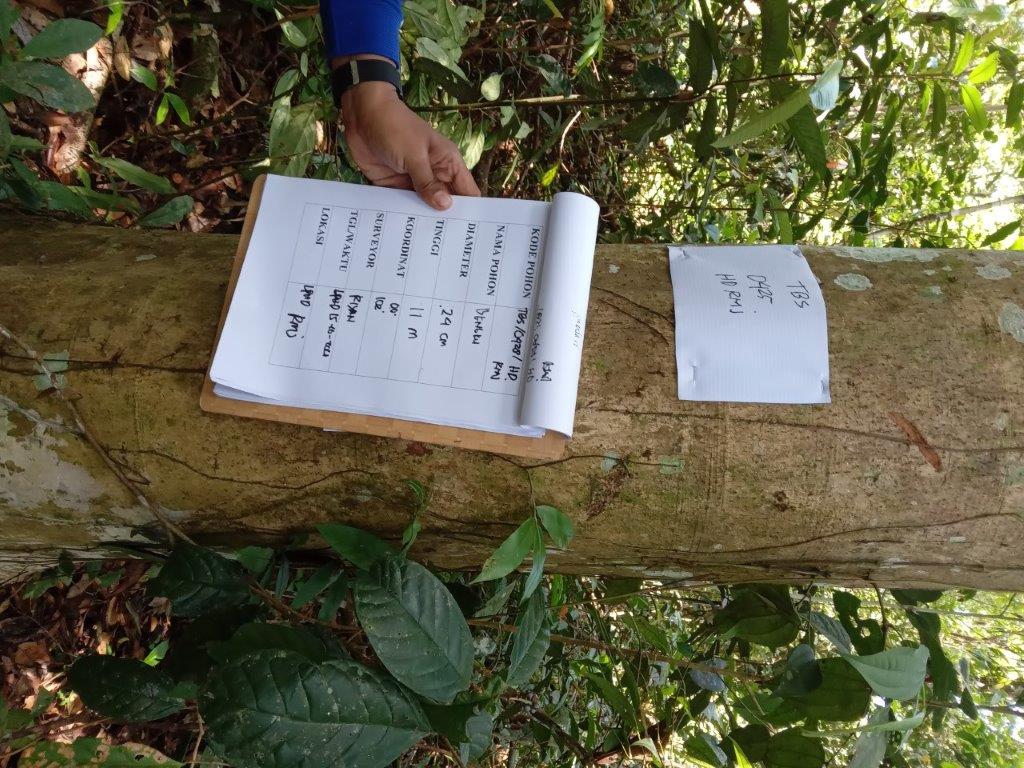 TBS
0425
HD RMJ
KODE POHON TBS/0425/ HD
RMJ
NAMA POHON
DIAMETER 29 cm
TINGGI 11 m
KOORDINAT 00°
102°
SURVEYOR RIDAN
TGL/WAKTU
LOKASI LPHD RMJ